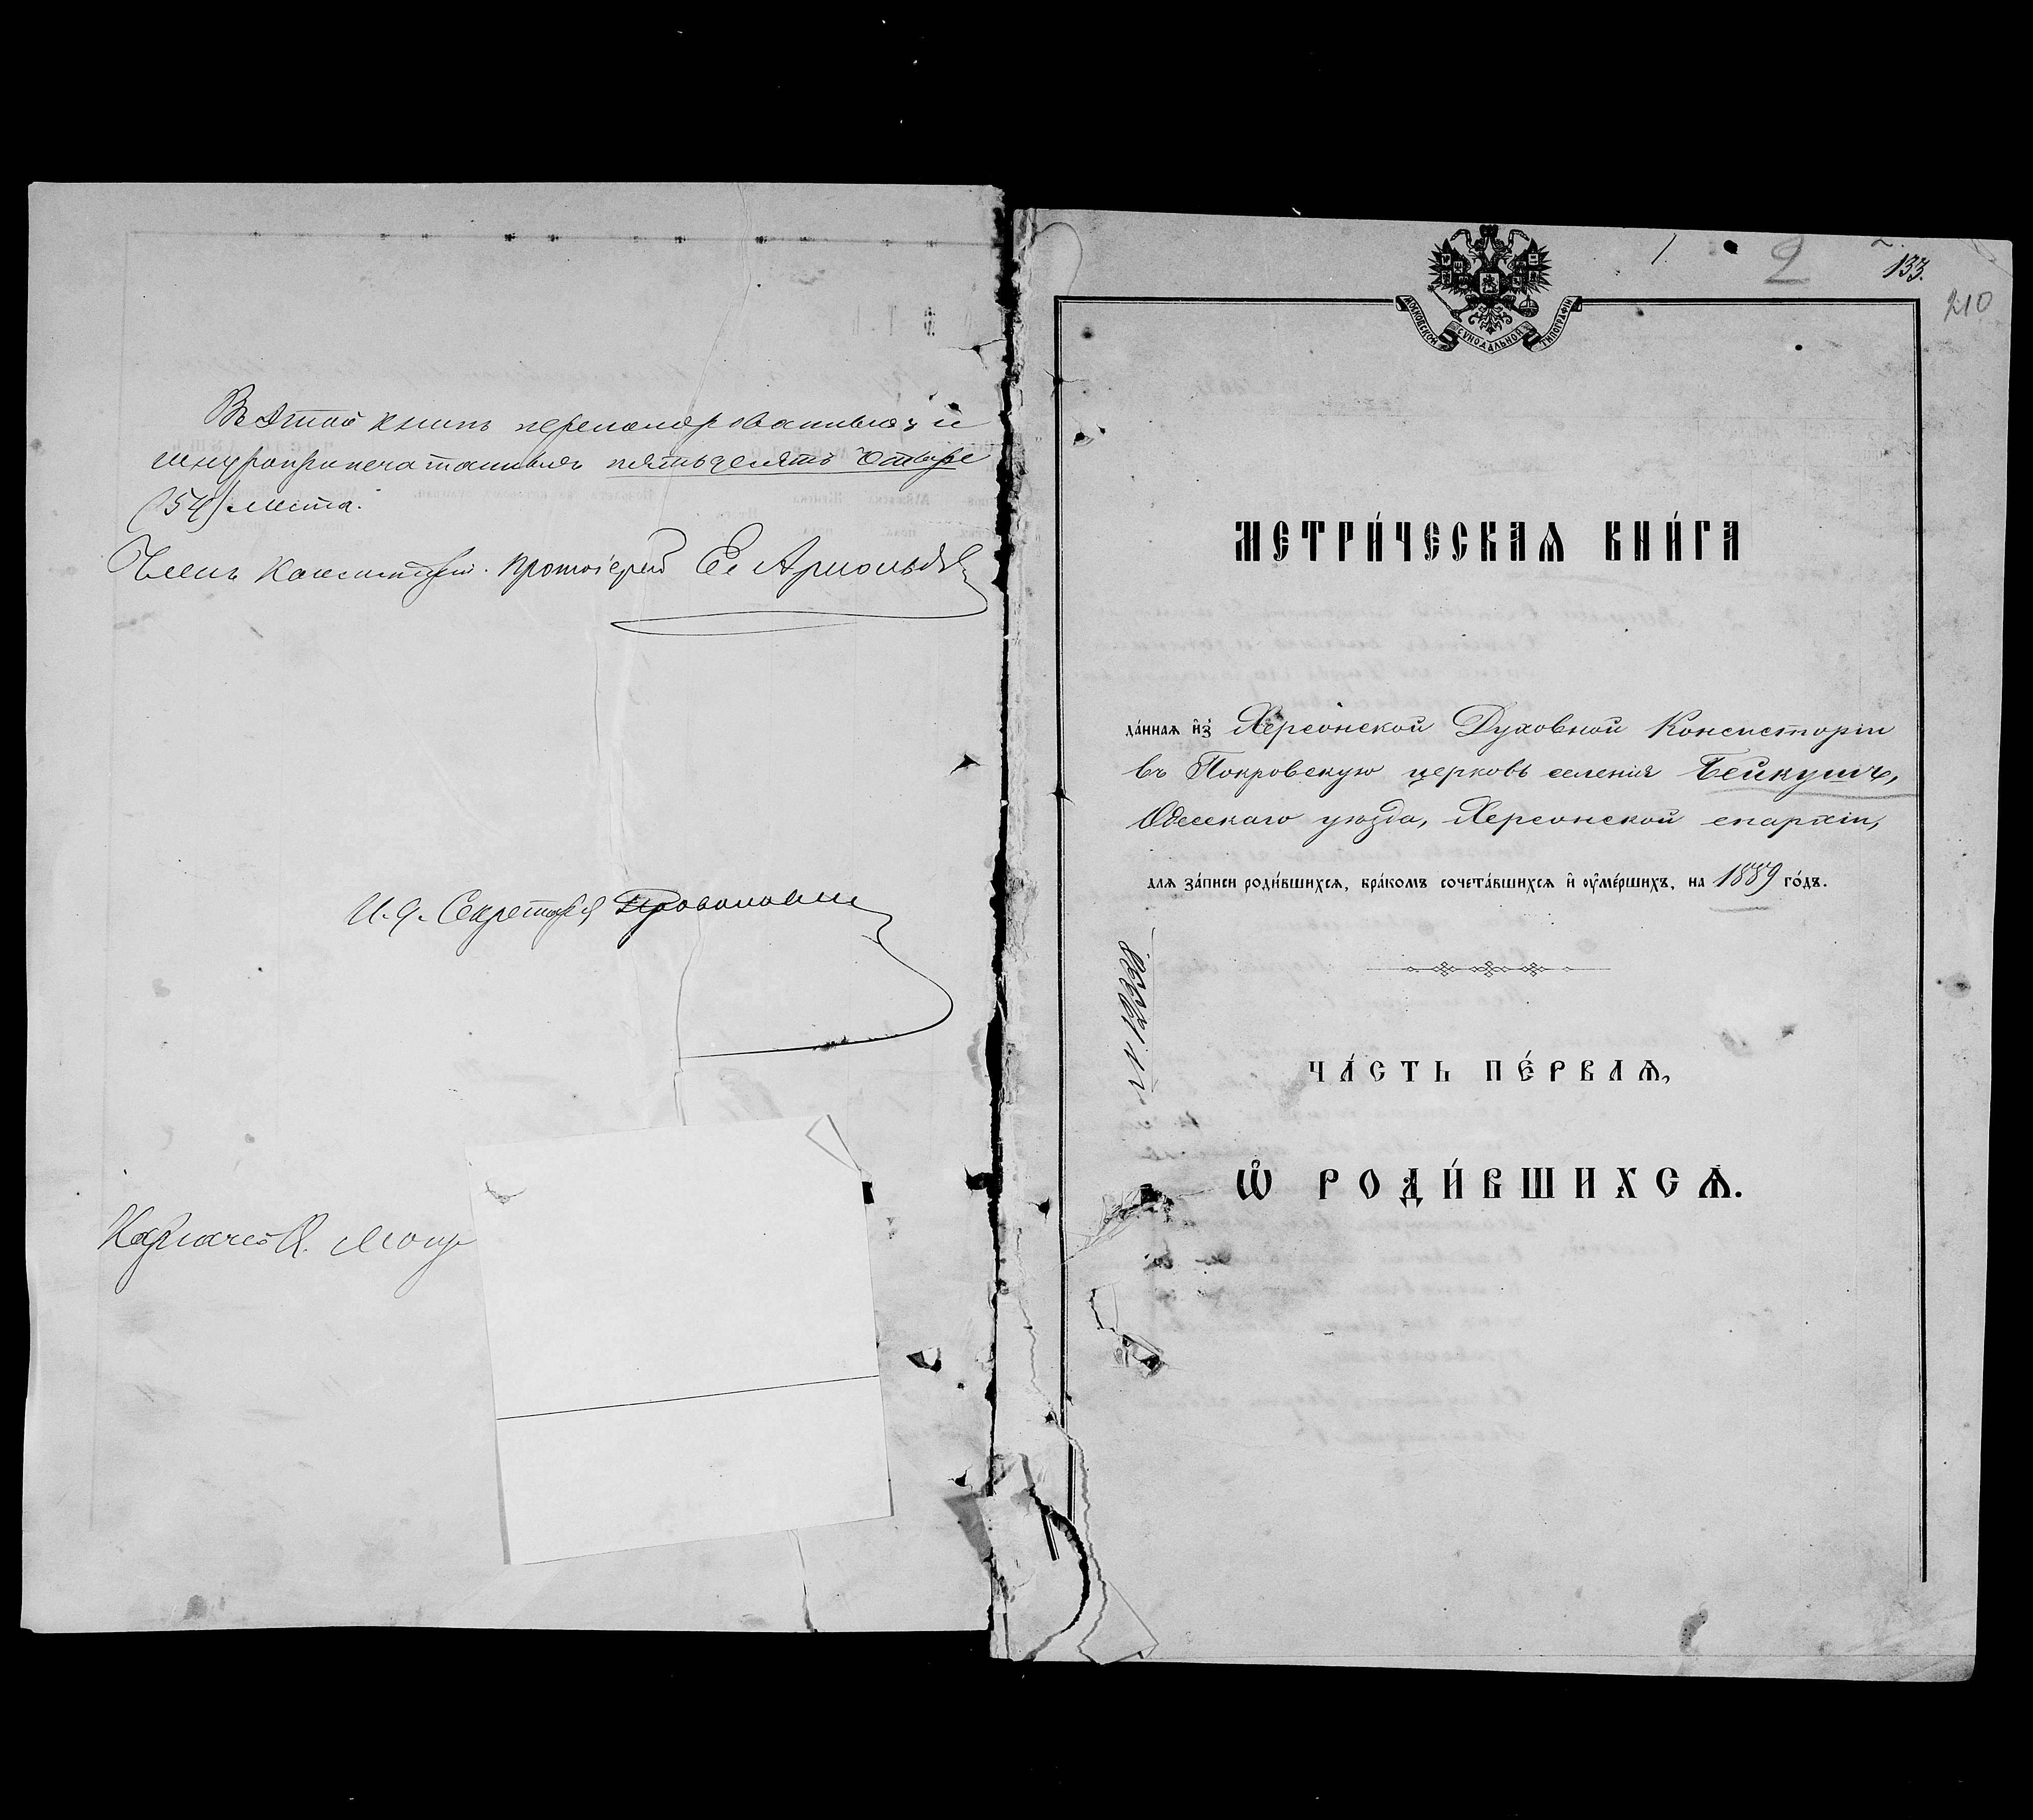 Въ этой книгѣ перенумерованныхъ и
шнуроприпечатанныхъ пятьдесятъ четыре
(54) листа.
Членъ Консисторіи Протоіерей Ев. Арнольдъ
И. д. Секретаря
1 2 133.
210
МОСКОВСКОЙ СѴНОДАЛЬНОЙ ТИПОГРАФІИ
МЕТРИ́ЧЕСКАѦ КНИ́ГА
да́ннаѧ и҆з̾ Херсонской Духовной Консисторіи
въ Покровскую церковь селенія Бейкушъ,
Одесскаго уѣзда, Херсонской епархіи,
длѧ за́писи роди́вшихсѧ, бра́комъ сочета́вшихсѧ и҆ ᲂу҆ме́ршихъ, на 1889 го́дъ.
№ 12338.
ЧА́СТЬ ПЕ́РВАѦ,
Ѽ РОДИ́ВШИХСѦ.